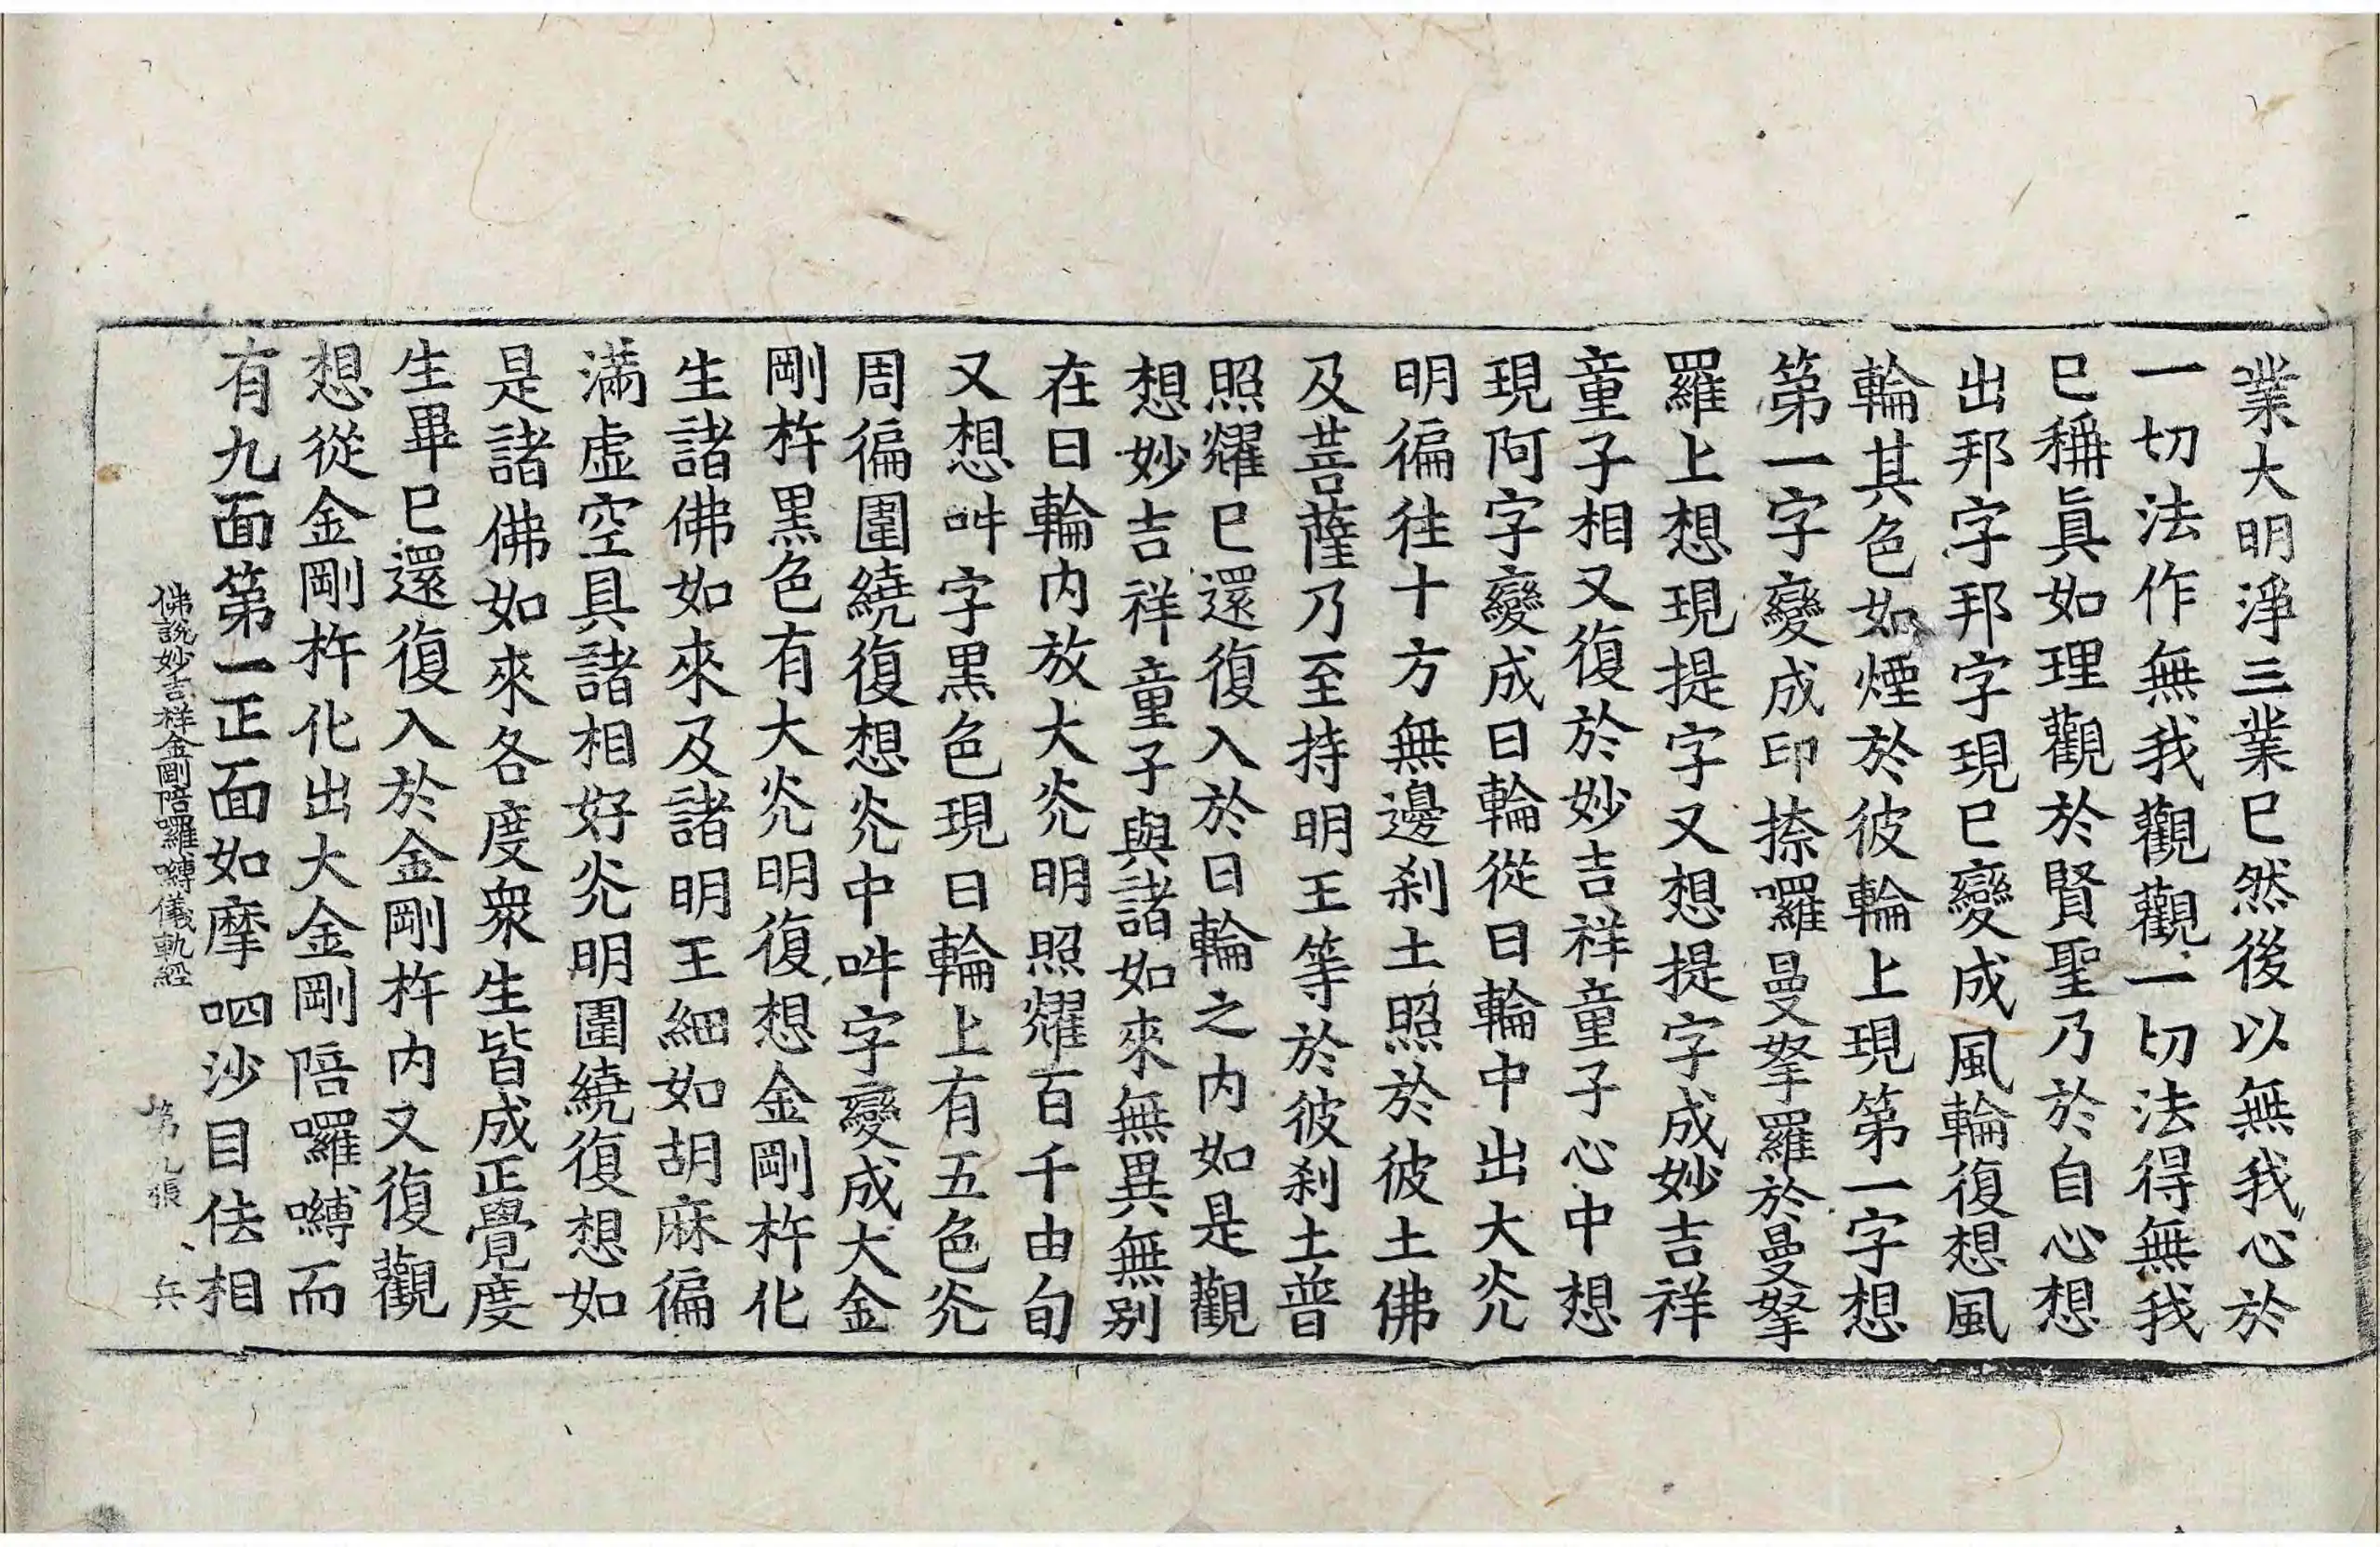 業大明淨三業已然後以無我心於
一切法作無我觀觀一切法得無我
已稱眞如理觀於賢聖乃於自心想
出邦字邦字現已變成風輪復想風
輪其色如煙於彼輪上現第一字想
第一字變成印捺囉曼拏羅於曼拏
羅上想現提字又想提字成妙吉祥
童子相又復於妙吉祥童子心中想
現阿字變成日輪從日輪中出大灮
明徧往十方無邊刹土照於彼土佛
及菩薩乃至持明王等於彼刹土普
照耀已還復入於日輪之内如是觀
想妙吉祥童子與諸如來無異無別
在日輪内放大灮明照耀百千由旬
又想吽字黑色現日輪上有五色灮
周徧圍繞復想灮中吽字變成大金
剛杵黒色有大灮明復想金剛杵化
生諸佛如來及諸明王細如胡麻徧
滿虛空具諸相好灮明圍繞復想如
是諸佛如來各度衆生皆成正覺度
生畢已還復入於金剛杵内又復觀
想從金剛杵化出大金剛陪囉嚩而
有九面第一正面如摩呬沙目佉相
佛說妙吉祥金剛陪囉嚩儀軌經 第九張 兵